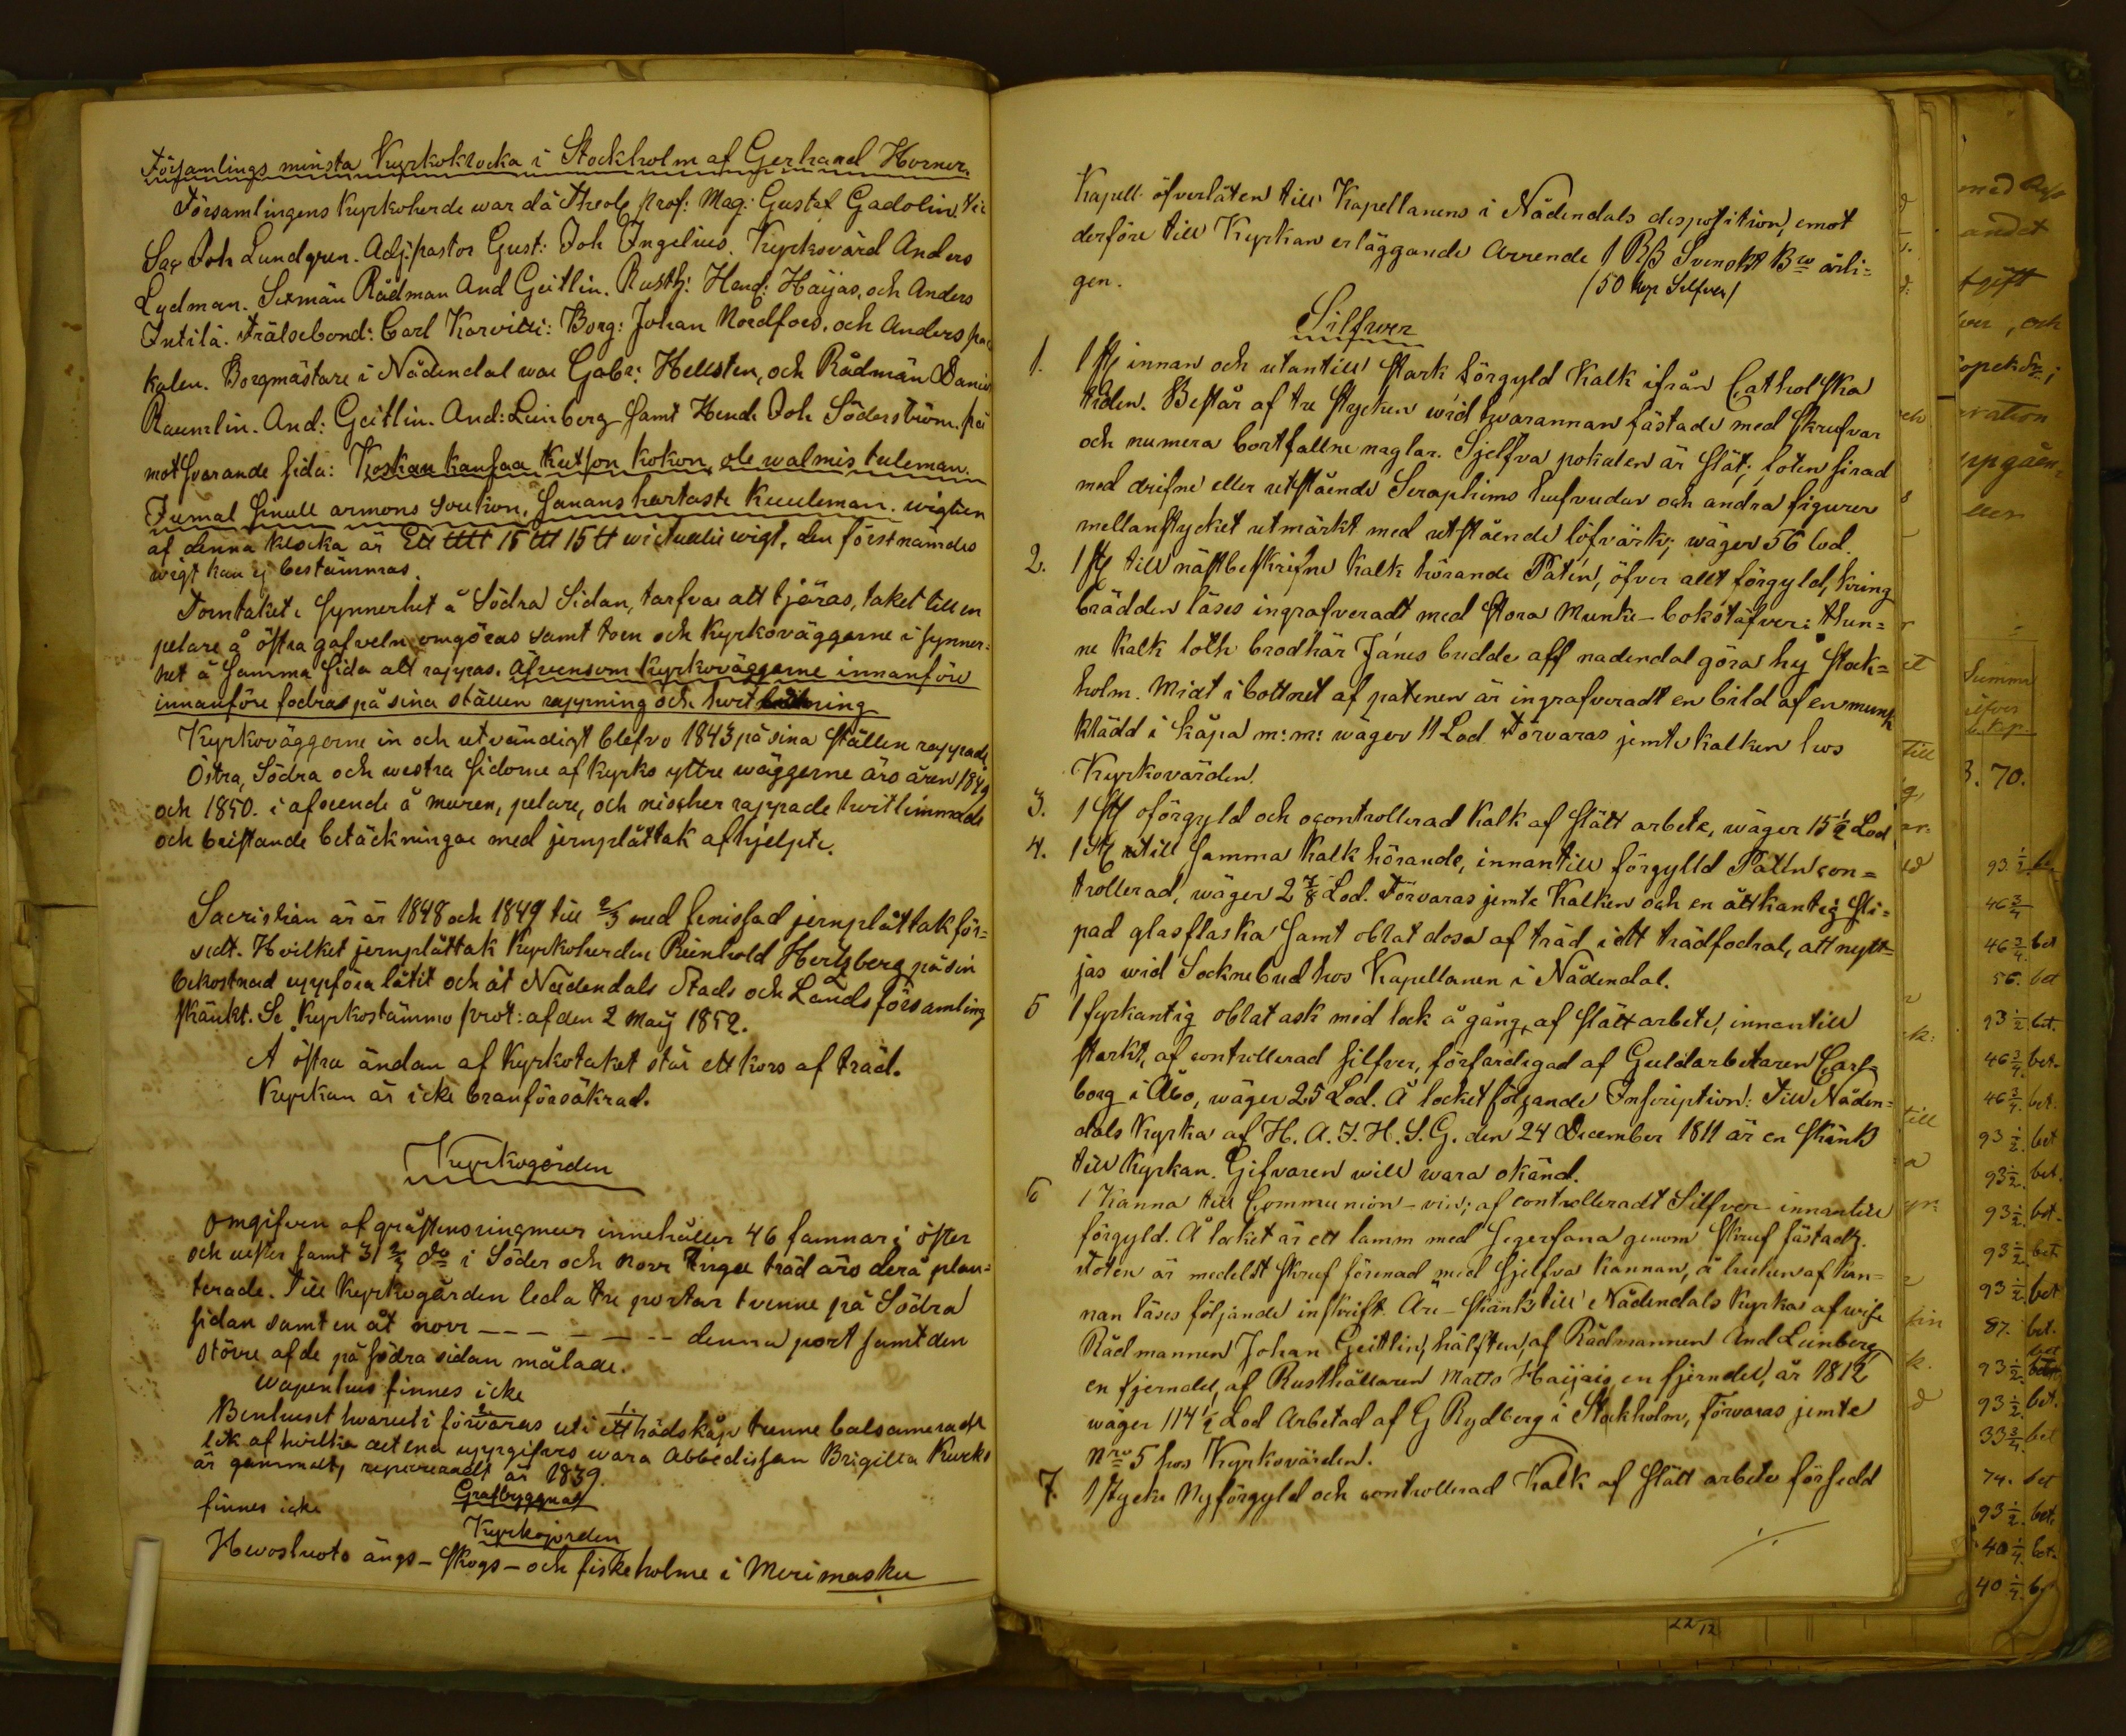 Församlings minsta Kyrkoklocka i Stockholm af Gerhard Horner.
Församlingens Kyrkoherde war då Theol. Prof: Mag: Gustaf Gadolin, Vic
Sac Joh Lundgren. Adj. pastor Gust: Joh Ingelius. Kyrkovärd Anders
Lydman. Sexmän Rådman And Geitlin. Rusth: Hend: Haijas, och Anders
Intilä. Frälsebond: Carl Karvitti: Borg: Johan Nordfors, och Anders pa
kalen. Borgmästare i Nådendal war Gabr: Hellsten, och Rådmän Daniel
Raumlin. And: Geitlin. And: Leinberg samt Hend. Joh Söderström. på
motsvarande sida: Koskan kansaa Kutson kokon, ole walmis tuleman.
Jumal sinull armons Soukon, sanans hartaste Kuuleman. wigten
af denna klocka är Ett 15 15 wictualie wigt, den förstnämdes
wigt kan ej bestämmas.
Torntaket i synnerhet å Södra Sidan, tarfvar att tjäras, taket till en
pelare å östra gafveln omgöras samt torn och Kyrkoväggarne i synner-
het å samma sida att rappas. Äfvensom Kyrkoväggarne innanföre
innanföre fodras på sina ställen rappning och hvit ning
Kyrkoväggarne in och utvändigt blefvo 1843 på sina ställen rappade
Östra, Södra och westra sidorne af Kyrko yttre wäggerne äro åren 1849
och 1850. i afseende å muren, pelare, och nischer rappade hvitlimmade
och bristande betäckningar med jernplåttak afhjelpte.
Sacristian är år 1848 och 1849 till 2/3 med fernissad jernplåttak för-
sedt. Hvilket jernplåttak Kyrkoherden Reinhold Hertzberg på sin
bekostnad uppföra låtit och åt Nådendals Stads och Lands församling
skänkt. Se Kyrkostämmo prot: af den 2 Maÿ 1852.
Å östra ändan af Kyrkotaket står ett kors af träd.
Kyrkan är icke branförsäkrad.
Kyrkogården
Omgifven af gråstensringmur innehåller 46 famnar i öster
och wester samt 31 3/4 do i Söder och Norr Tirgu träd äro derå plan-
terade. Till Kyrkogården leda tre portar tvenne på Södra
sidan samt en åt norr - - - - - - - denna port samt den
större af de på södra sidan målade.
Wapenhus finnes icke
Benhuset hwaruti förwaras uti ett trädskåp tvenne balsamerade
lik af hvilka det ena uppgifves wara Abbedissan Brigitta Kurks
är gammalt, repareradt år 1839.
Grafbyggnad
finnes icke
Kyrkojorden
Hevosluoto ängs- skogs- och fiskeholme i Merimasku
Kapell. öfverlåten till Kapellanens i Nådendals disposition, emot
derföre till Kyrkan erläggande Arrende 1 Rß Svenskt Bco årli-
gen.
/50 kop Silfver/
Silfwer
1. 1 st innan och utantill stark förgyld Kalk ifrån Catholska
tiden. Består af tre stycken wid hwarannan fästade med skrufvar
och numera bortfallne naglar. Sjelfva pokalen är slät, foten sirad
med drifne eller utstående Seraphims hufvuden och andra figurer
mellanstycket utmärkt med utstående löfvärk; wäger 56 lod.
2. 1 st till nästbeskrifne Kalk hörande Patén, öfver allt förgyld, kring
brädden läses ingrafveradt med stora Munke-bokstäfver: thun-
ne Kalk loth brodhär Jánes budde aff nadendal göra hy stock-
holm. Midt i bottnet af patenen är ingrafveradt en bild af en munk
klädd i kåpa m: m: wäger 11 Lod. Förvaras jemte Kalken hos
Kyrkovärden.
3. 1 st oförgyld och ocontrollerad Kalk af slätt arbete, wäger 15 1/2 Lod
4. 1 st till samma Kalk hörande, innantill förgylld Patén, con-
trollerad, wäger 2 7/8 Lod. Förvaras jemte Kalken och en åttkantig sli-
pad glasflaska samt oblat dosa af träd i ett trädfodral, att nytt-
jas wid Socknebud hos Kapellanen i Nådendal.
5 1 fyrkantig oblat ask med lock å gång, af slätt arbete, innantill
starkt, af controllerad silfver, förfärdigad af Guldarbetaren Carl-
borg i Åbo, wäger 25 Lod. Å locket följande Inscription: Till Nåden-
dals Kyrka af H. A. J. H. S. G. den 24 December 1811 är en skänk
till Kyrkan. Gifvaren will wara okänd.
6 1 Kanna till Communion-vin; af controlleradt Silfver innantill
förgyld. Å locket är ett lamm med Segerfana genom skruf fästadt.
Foten är medelst skruf förenad med sjelfva Kannan, å buken af Kan-
nan läses följande inskrift. Äre-skänk till Nådendals Kyrka af wise
Rådmannen Johan Geitlin, hälften, af Rådmannen And Leinberg
en fjerndel, af Rusthållaren Matts Haijais en fjerndel, år 1812
wäger 114 1/2 Lod Arbetad af G Rydberg i Stockholm, förvaras jemte
Nro 5 hos Kyrkovärden.
7. 1 stycke Nyförgyld och controllerad Kalk af slätt arbete försedd
./.
andet
Summa
silfver
70.
93 1/2
46 3/4
46 3/4 bet
56. bet
93 1/2 bet.
46 3/4 bet.
46 3/4 bet.
93 1/2 bet
93 1/2 bet.
93 1/2 bet.
93 1/2 bet
93 1/2 bet
87. bet.
93 1/2 bet
93 1/2 bet.
33 3/4 bet
74. bet
93 1/2 bet.
40 1/4 bet.
40 1/4